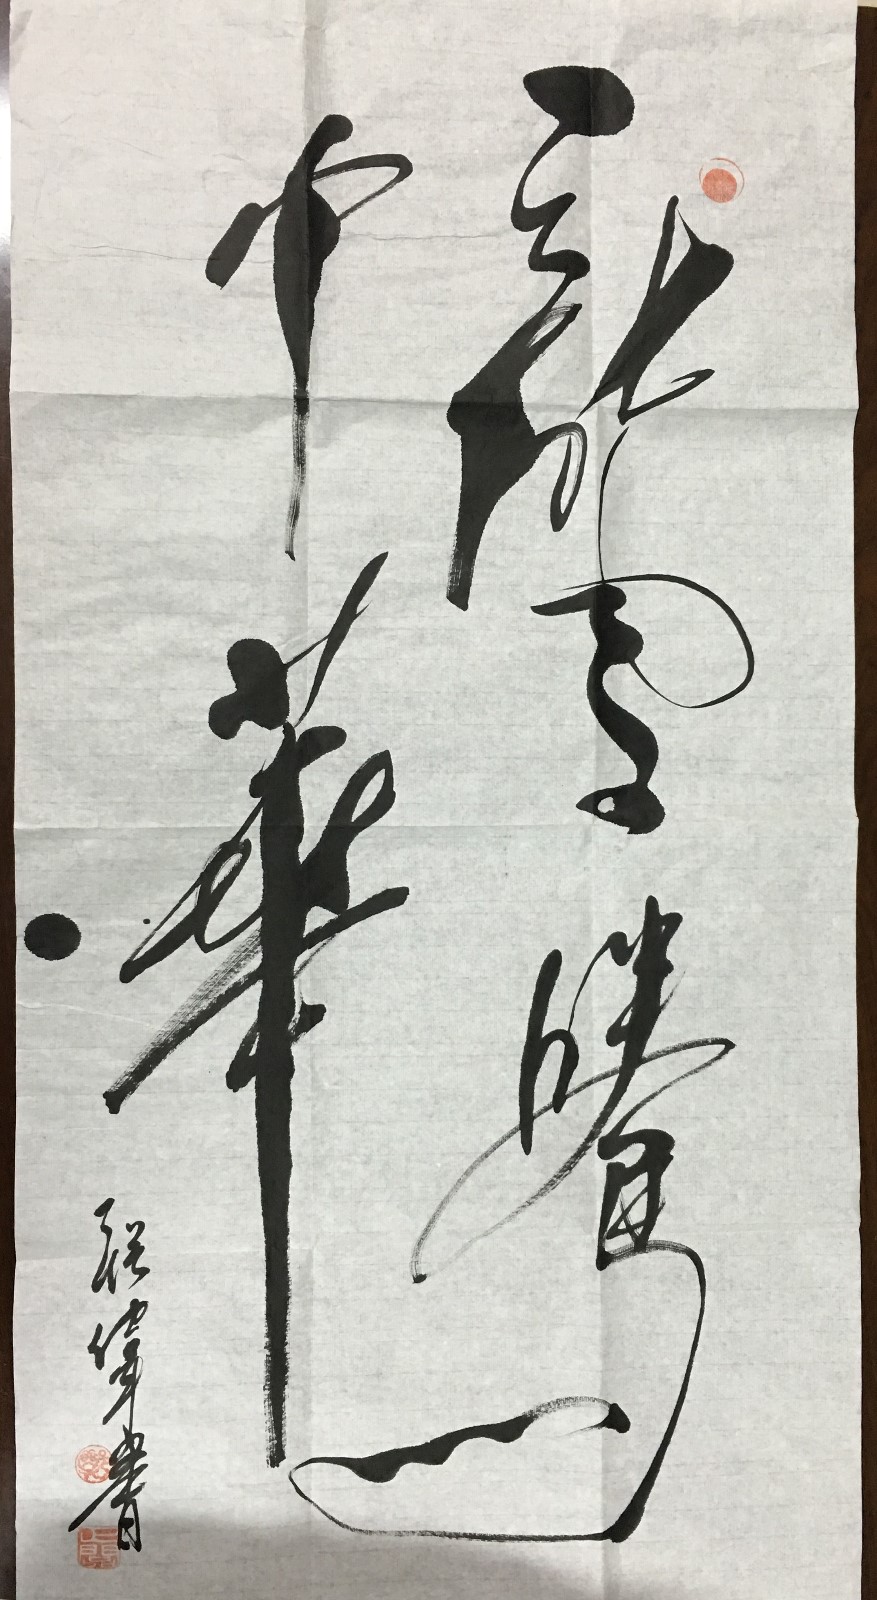 龍騰
中華
偉書